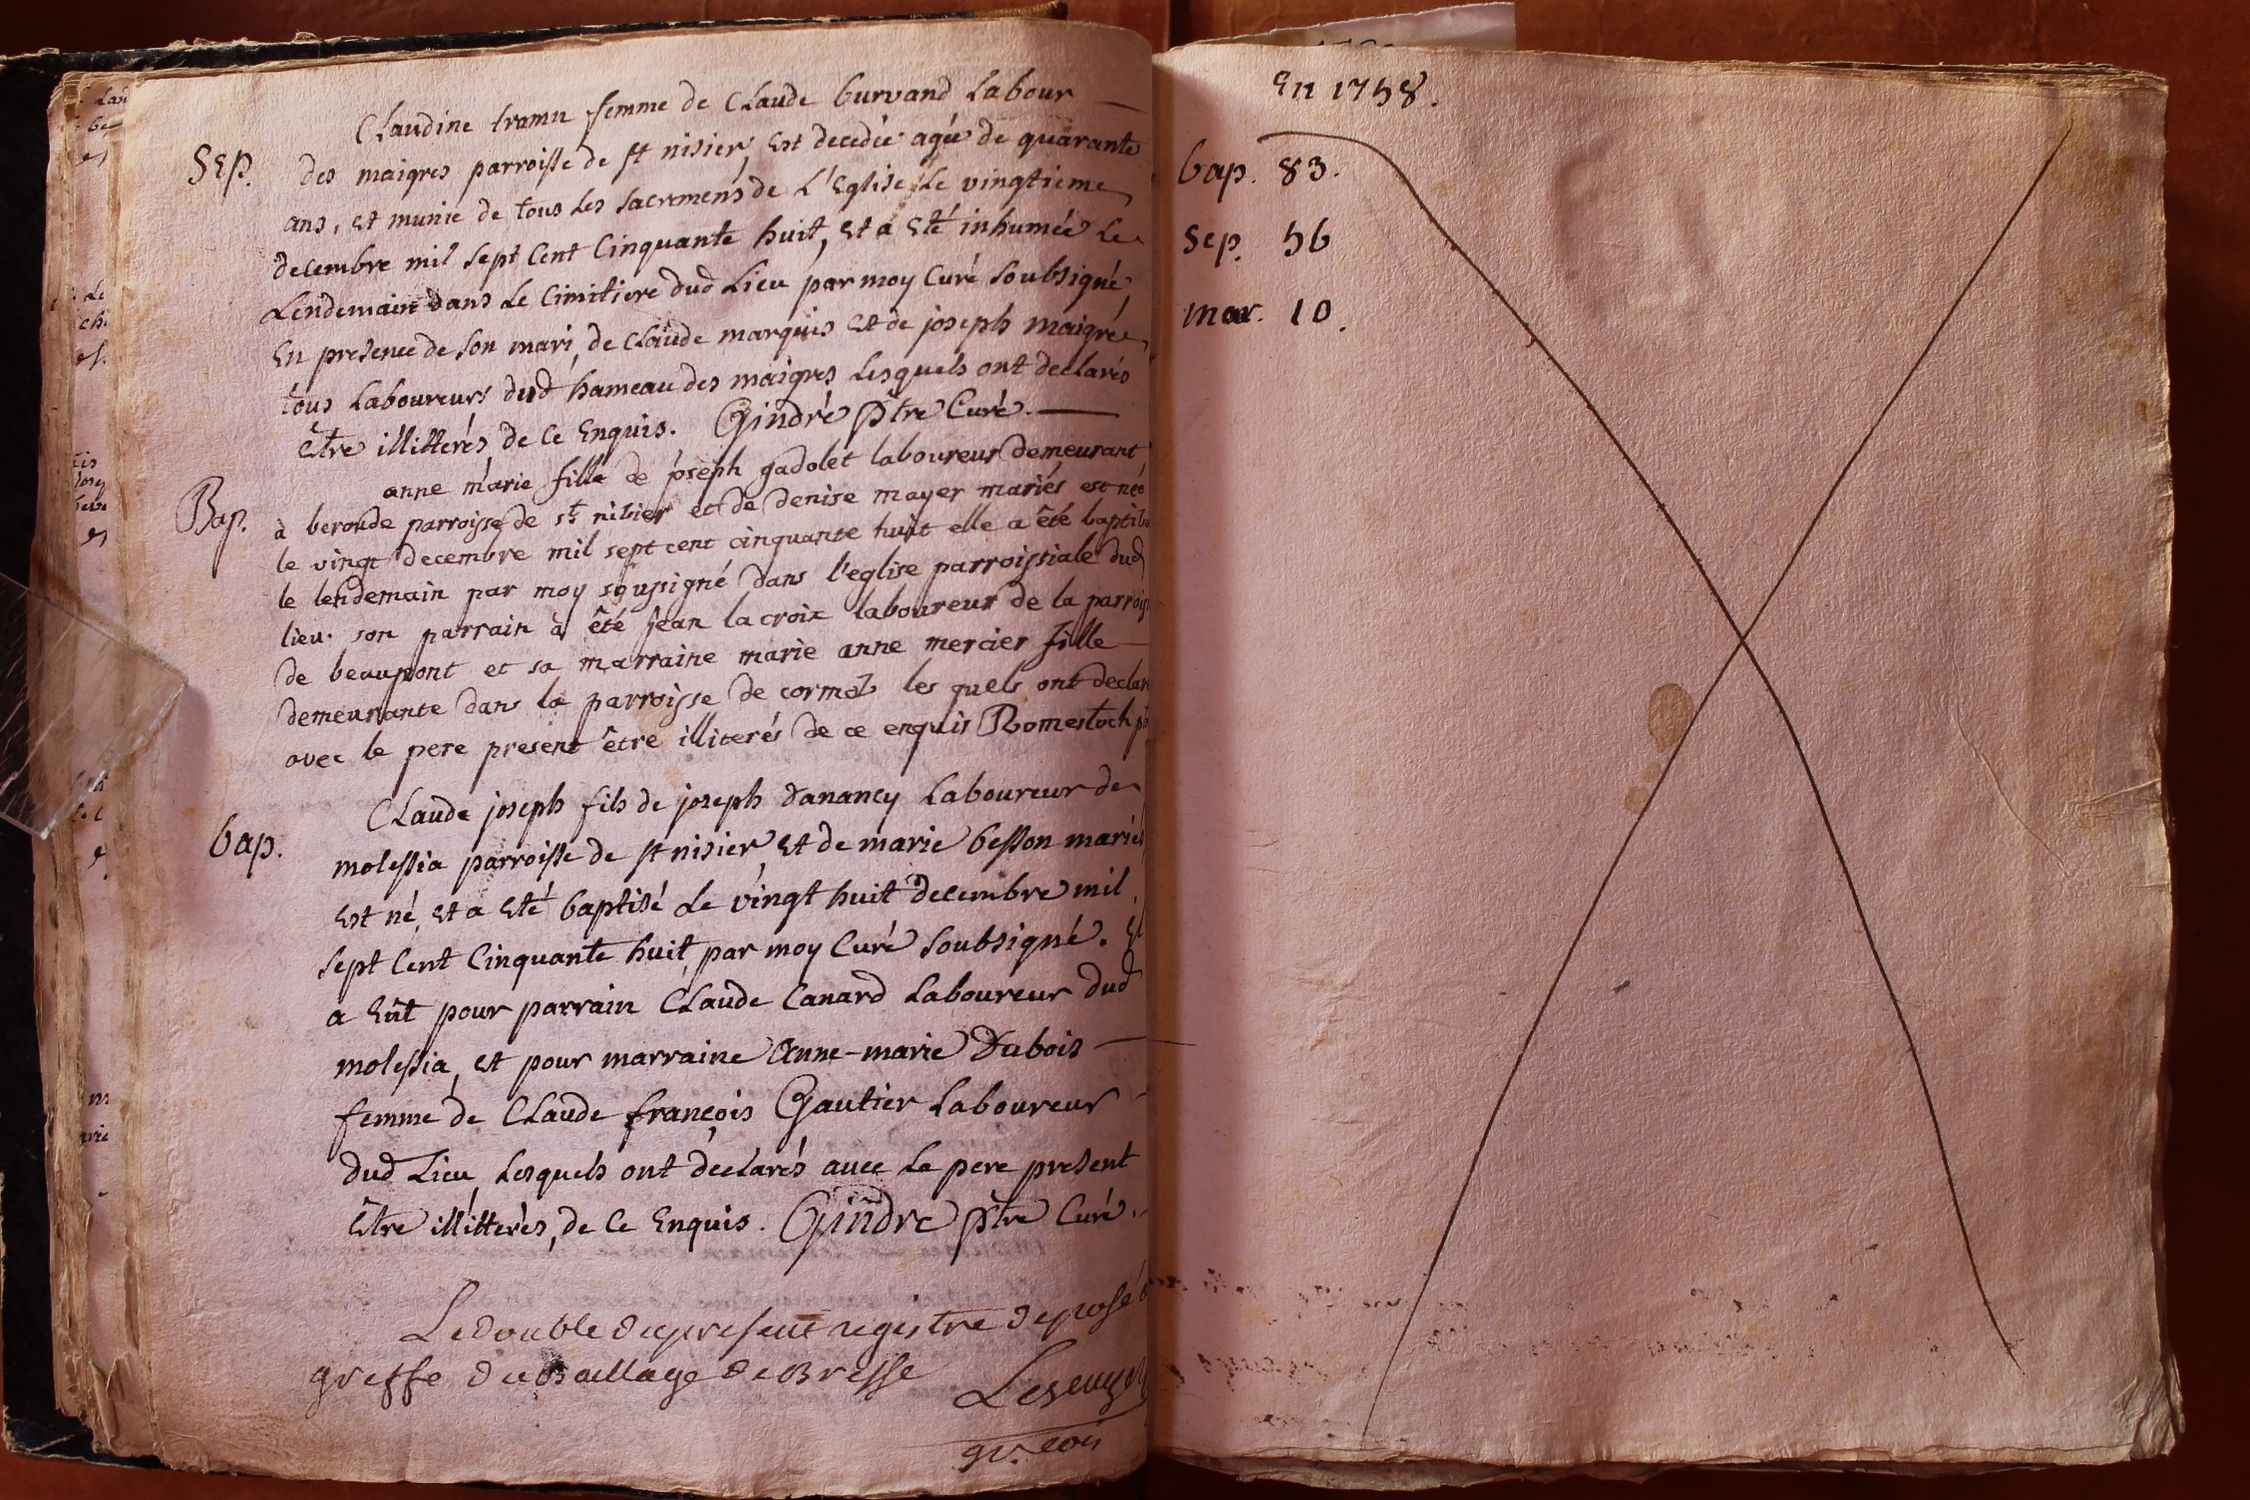 Claudine tramu femme de Claude burvand Labour
Sep. des maigres parroisse de st nisier, Est decedée agée de quarante
ans, et munie de tous Les sacremens de L'Eglise Le vingtieme
decembre mil sept Cent Cinquante huit, et a Eté inhumée Le
Lendemain dans Le Cimitiere dud Lieu par moy Curé soubsigné,
En presence de son mari, de Claude marquis et de joseph maigre
tous Laboureurs dud hameau des maigres Lesquels ont declarés
être illitterés, de Ce Enquis. Gindre ptre Curé.
anne marie fille de joseph gadolet laboureur demeurant
Bap. à beroude parroisse de st nisier et de denise mayer mariés est née
le vingt decembre mil sept cent cinquante huit elle a été baptis
le lendemain par moy sousigné dans l'eglise parroissiale dud
lieu. son parrain à été jean lacroix laboureur de la parrois
de beaupont et sa marraine marie anne mercier fille
demeurante dans la parroisse de cormoz les quels ont declar
avec le pere present être illiterés de ce enquis Romestoch p
Claude joseph fils de joseph danancy Laboureur de
bap. molessia parroisse de st nisier, et de marie besson mariés
est né, et a été baptisé Le vingt huit decembre mil
sept Cent Cinquante huit, par moy Curé soubsigné. Il
a Eût pour parrain Claude Canard Laboureur dud
molessia, et pour marraine Anne-marie Dubois
femme de Claude françois Gautier Laboureur
dud Lieu, Lesquels ont declarés avec Le pere present
Être illitterés, de Ce Enquis. Gindre ptre Curé.
Le double du present registre deposé
greffe du Baillage de Bresse
En 1758.
bap. 83.
Sep. 56
mar. 10.